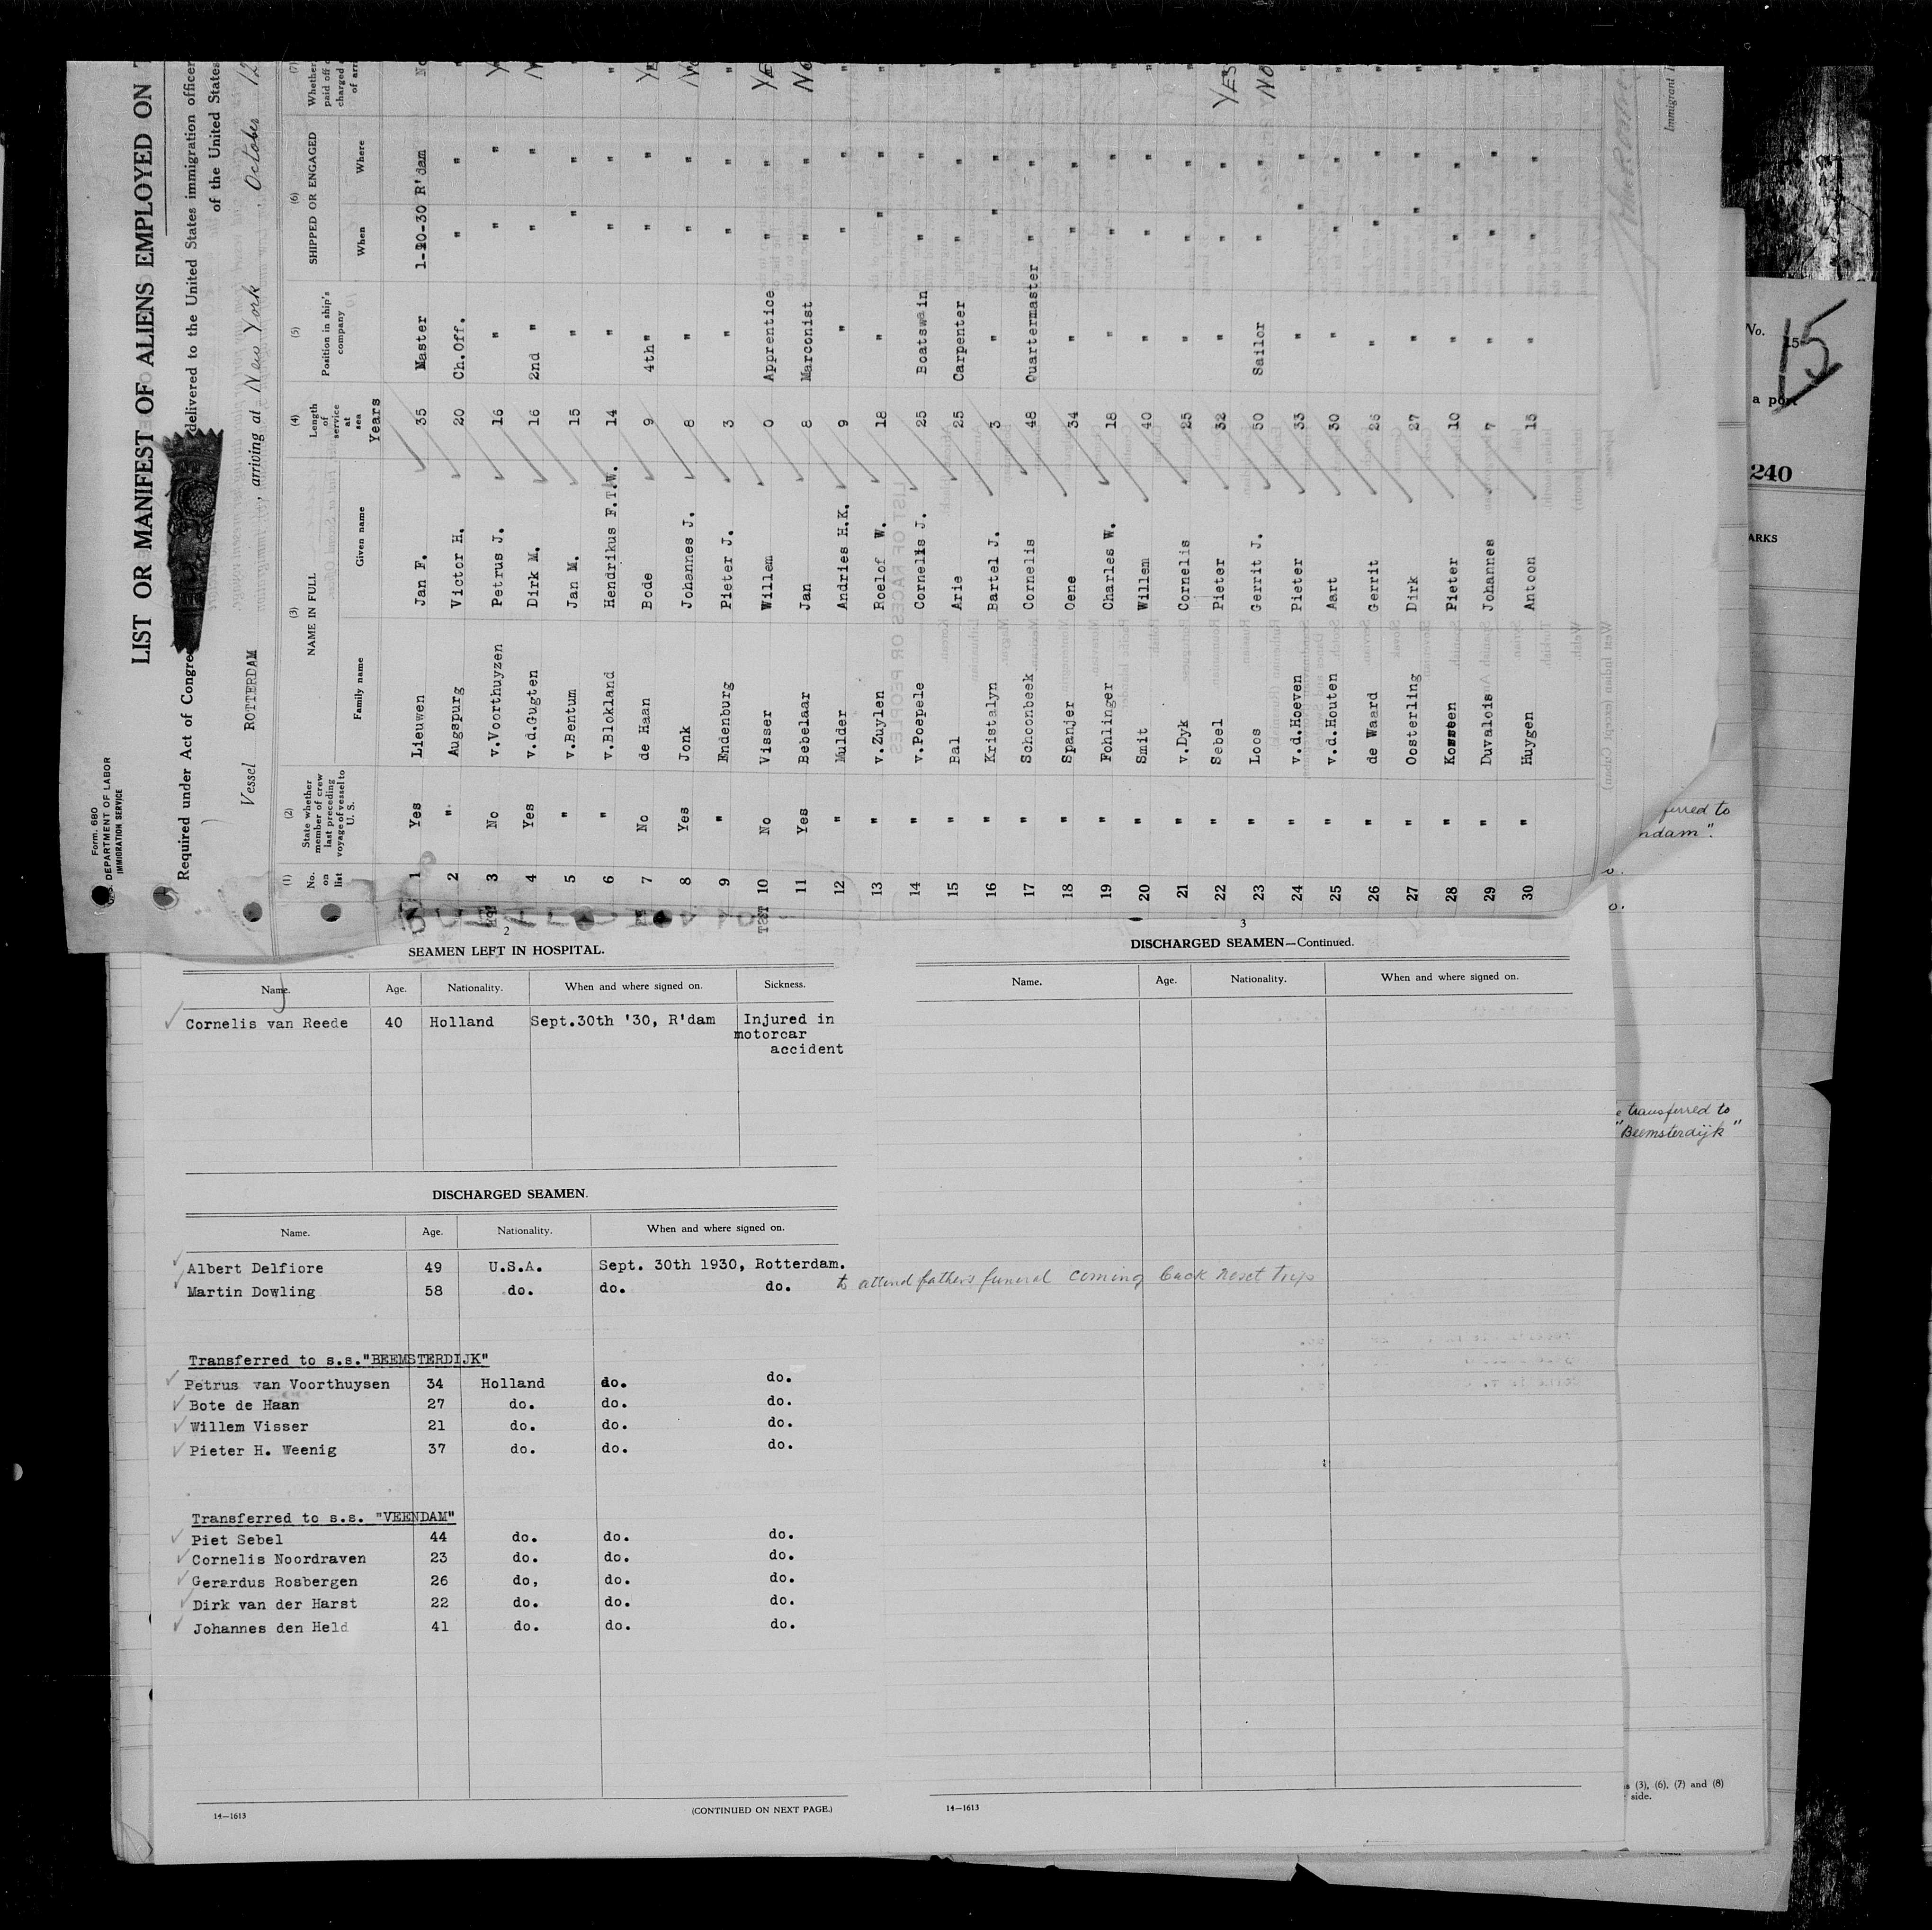 Form 680
DEPARTMENT OF LABOR
IMMIGRATION SERVICE
LIST OR MANIFEST OF ALIENS EMPLOYED ON
Required under Act of Congre delivered to the United States immigration officer
of the United States
Vessel ROTTERDAM , arriving at New York , October 12
(1) No. on list
(2) State whether member of crew last preceding voyage of vessel to U. S.
(3) NAME IN FULL
Family name Given name
(4) Length of service at sea
Years
(5) Position in ship's company
(6) SHIPPED OR ENGAGED
When Where
(7) Whether paid off
1 Yes Lieuwen Jan F. 35 Master 1-10-30 R'dam No
2 " Augspurg Victor H. 20 Ch.Off. " " "
3 No v.Voorthuyzen Petrus J. 16 " " "
4 Yes v.d.Gugten Dirk M. 16 2nd " " "
5 " v.Bentum Jan M. 15 " " " "
6 " v.Blokland Hendrikus F.T.W. 14 " " " "
7 No de Haan Bode 9 4th " " "
8 Yes Jonk Johannes J. 8 " " " No
9 " Endenburg Pieter J. 3 " " " "
10 No Visser Willem 0 Apprentice " " YES
11 Yes Bebelaar Jan 8 Marconist " " No
12 " Mulder Andries H.K. 9 " " " "
13 " v.Zuylen Roelof W. 18 " " " "
14 " v.Poepele Cornelis J. 25 Boatswain " " "
15 " Bal Arie 25 Carpenter " " "
16 " Kristalyn Bartel J. 3 " " " "
17 " Schoonbeek Cornelis 48 Quartermaster " " "
18 " Spanjer Oene 34 " " " "
19 " Fohlinger Charles W. 18 " " " "
20 " Smit Willem 40 " " " "
21 " v.Dyk Cornelis 25 " " " "
22 " Sebel Pieter 32 " " " YES
23 " Loos Gerrit J. 50 Sailor " " NO
24 " v.d.Hoeven Pieter 33 " " " "
25 " v.d.Houten Aart 30 " " " "
26 " de Waard Gerrit 26 " " " "
27 " Oosterling Dirk 27 " " " "
28 " Pieter 10 " " " "
29 " Duvalois Johannes 7 " " " "
30 " Huygen Antoon 15 " " " "
Immigrant
No. 15
15
a port
240
ARKS
ferred to
ndam".
transferred to
"Beemsterdijk"
2
SEAMEN LEFT IN HOSPITAL.
Name. Age. Nationality. When and where signed on. Sickness.
Cornelis van Reede 40 Holland Sept.30th '30, R'dam Injured in
motorcar
accident
DISCHARGED SEAMEN.
Name. Age. Nationality. When and where signed on.
Albert Delfiore 49 U.S.A. Sept. 30th 1930, Rotterdam.
Martin Dowling 58 do. do. do. to attend fathers funeral coming back next trip
Transferred to s.s."BEEMSTERDIJK"
Petrus van Voorthuysen 34 Holland do. do.
Bote de Haan 27 do. do. do.
Willem Visser 21 do. do. do.
Pieter H. Weenig 37 do. do. do.
Transferred to s.s. "VEENDAM"
Piet Sebel 44 do. do. do.
Cornelis Noordraven 23 do. do. do.
Gerardus Rosbergen 26 do, do. do.
Dirk van der Harst 22 do. do. do.
Johannes den Held 41 do. do. do.
14—1613 (CONTINUED ON NEXT PAGE.)
3
DISCHARGED SEAMEN—Continued.
Name. Age. Nationality. When and where signed on.
14—1613
(3), (6), (7) and (8)
side.